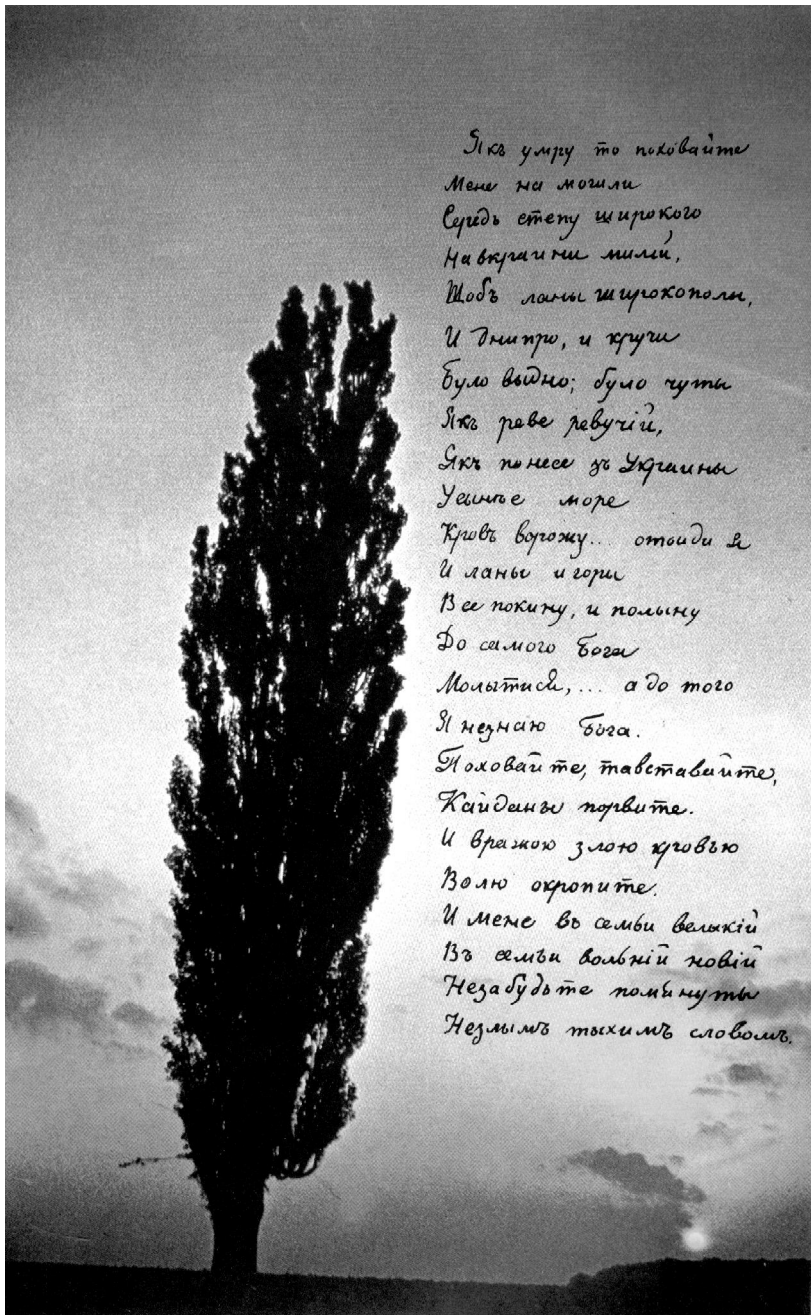 Якъ умру то поховайте
Мене на могили
Середь степу широкого
На вкраини милій,
Щобъ ланы широкополы,
И Днипро, и кручи
Було выдно; було чуты
Якъ реве ревучій,
Якъ понесе зъ Украины
У синье море
Кровъ ворожу... отоиди я
И ланы и горы
Все покину, и полыну
До самого Бога
Молытися,... а до того
Я незнаю Бога.
Поховайте, та вставайте,
Кайданы порвите.
И вражою злою кровъю
Волю окропите.
И мене въ семьи велыкій
Въ семьи вольній новій
Незабудьте помянуты
Незлымъ тыхимъ словомъ.